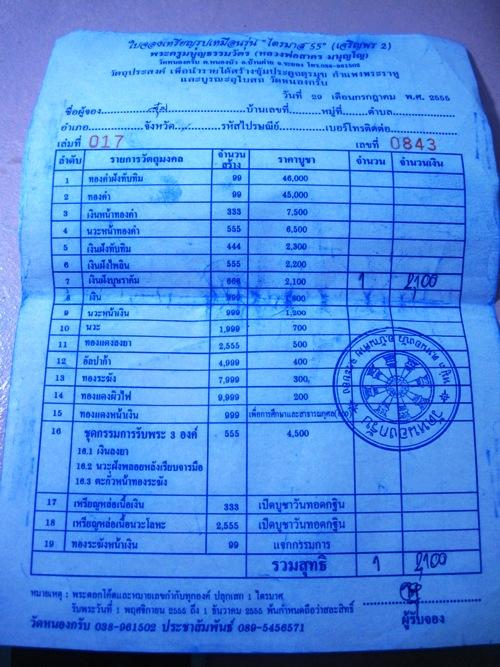 ใบจองเหรียญรูปเหมือนรุ่น "ไตรมาส 55" (เจริญพร 2)
พระครูมนูญธรรมวัตร (หลวงพ่อสาคร มนุญโญ)
วัดหนองกรับ ต.หนองบัว อ.บ้านค่าย จ.ระยอง โทร.038-961502
วัตถุประสงค์ เพื่อนำรายได้สร้างซุ้มประตูจตุรมุข กำแพงพระราหู
และบูรณะอุโบสถ วัดหนองกรับ
วันที่ 29 เดือนกรกฎาคม พ.ศ. 2555
ชื่อผู้จอง บ้านเลขที่ หมู่ที่ ตำบล
อำเภอ จังหวัด รหัสไปรษณีย์ เบอร์โทรติดต่อ
เล่มที่ 017 เลขที่ 0843
ลำดับ รายการวัตถุมงคล จำนวนสร้าง ราคาบูชา จำนวน จำนวนเงิน
1 ทองคำฝังทับทิม 99 46,000
2 ทองคำ 99 45,000
3 เงินหน้าทองคำ 333 7,500
4 นวะหน้าทองคำ 555 6,500
5 เงินฝังทับทิม 444 2,300
6 เงินฝังไพลิน 555 2,200
7 เงินฝังบุษราคัม 666 2,100 1 2,100
8 เงิน 999
9 นวะหน้าเงิน 999 1,200
10 นวะ 1,999 700
11 ทองแดงลงยา 2,555 500
12 อัลปาก้า 4,999 400
13 ทองระฆัง 7,999 300
14 ทองแดงผิวไฟ 9,999 200
15 ทองแดงหน้าเงิน 999 เพื่อการศึกษาและสาธารณกุศล
16 ชุดกรรมการรับพระ 3 องค์ 555 4,500
16.1 เงินลงยา
16.2 นวะฝังพลอยหลังเรียบจารมือ
16.3 ตะกั่วหน้าทองระฆัง
17 เหรียญหล่อเนื้อเงิน 333 เปิดบูชาวันทอดกฐิน
18 เหรียญหล่อเนื้อนวะโลหะ 2,555 เปิดบูชาวันทอดกฐิน
19 ทองระฆังหน้าเงิน 99 แจกกรรมการ
รวมสุทธิ 1 2,100
วัดหนองกรับ
หมายเหตุ : พระตอกโค้ตและหมายเลขกำกับทุกองค์ ปลุกเสก 1 ไตรมาส
รับพระวันที่ 1 พฤศจิกายน 2555 ถึง 1 ธันวาคม 2555 พ้นกำหนดถือว่าสละสิทธิ์
ผู้รับจอง
วัดหนองกรับ 038-961502 ประชาสัมพันธ์ 089-5456571